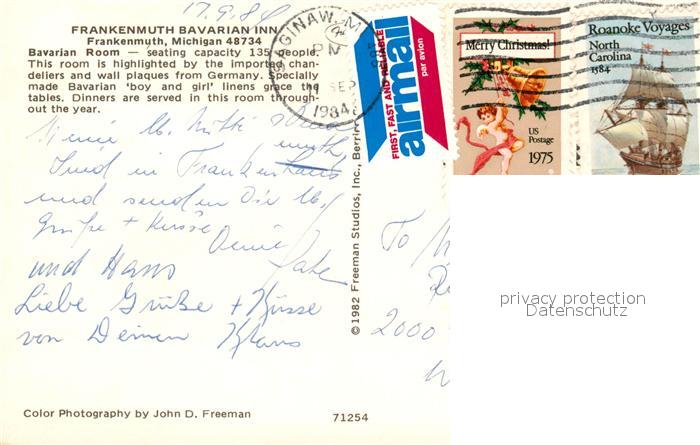 17.9.84
FRANKENMUTH BAVARIAN INN
Frankenmuth, Michigan 48734
Bavarian Room — seating capacity 135 people.
This room is highlighted by the imported chan-
deliers and wall plaques from Germany. Specially
made Bavarian 'boy and girl' linens grace the
tables. Dinners are served in this room through-
out the year.
muth
Sind in Franken
und senden Dir
Grüße + Küsse
und Hans
Liebe Grüße + Küsse
von Deinem Klaus
Color Photography by John D. Freeman
71254
© 1982 Freeman Studios, Inc., Berrien
SAGINAW, M
PM
SEP
1984
FIRST, FAST AND RELIABLE
airmail
par avion
Merry Christmas!
US
Postage
1975
Roanoke Voyages
North
Carolina
1584
To
2000
privacy protection
Datenschutz